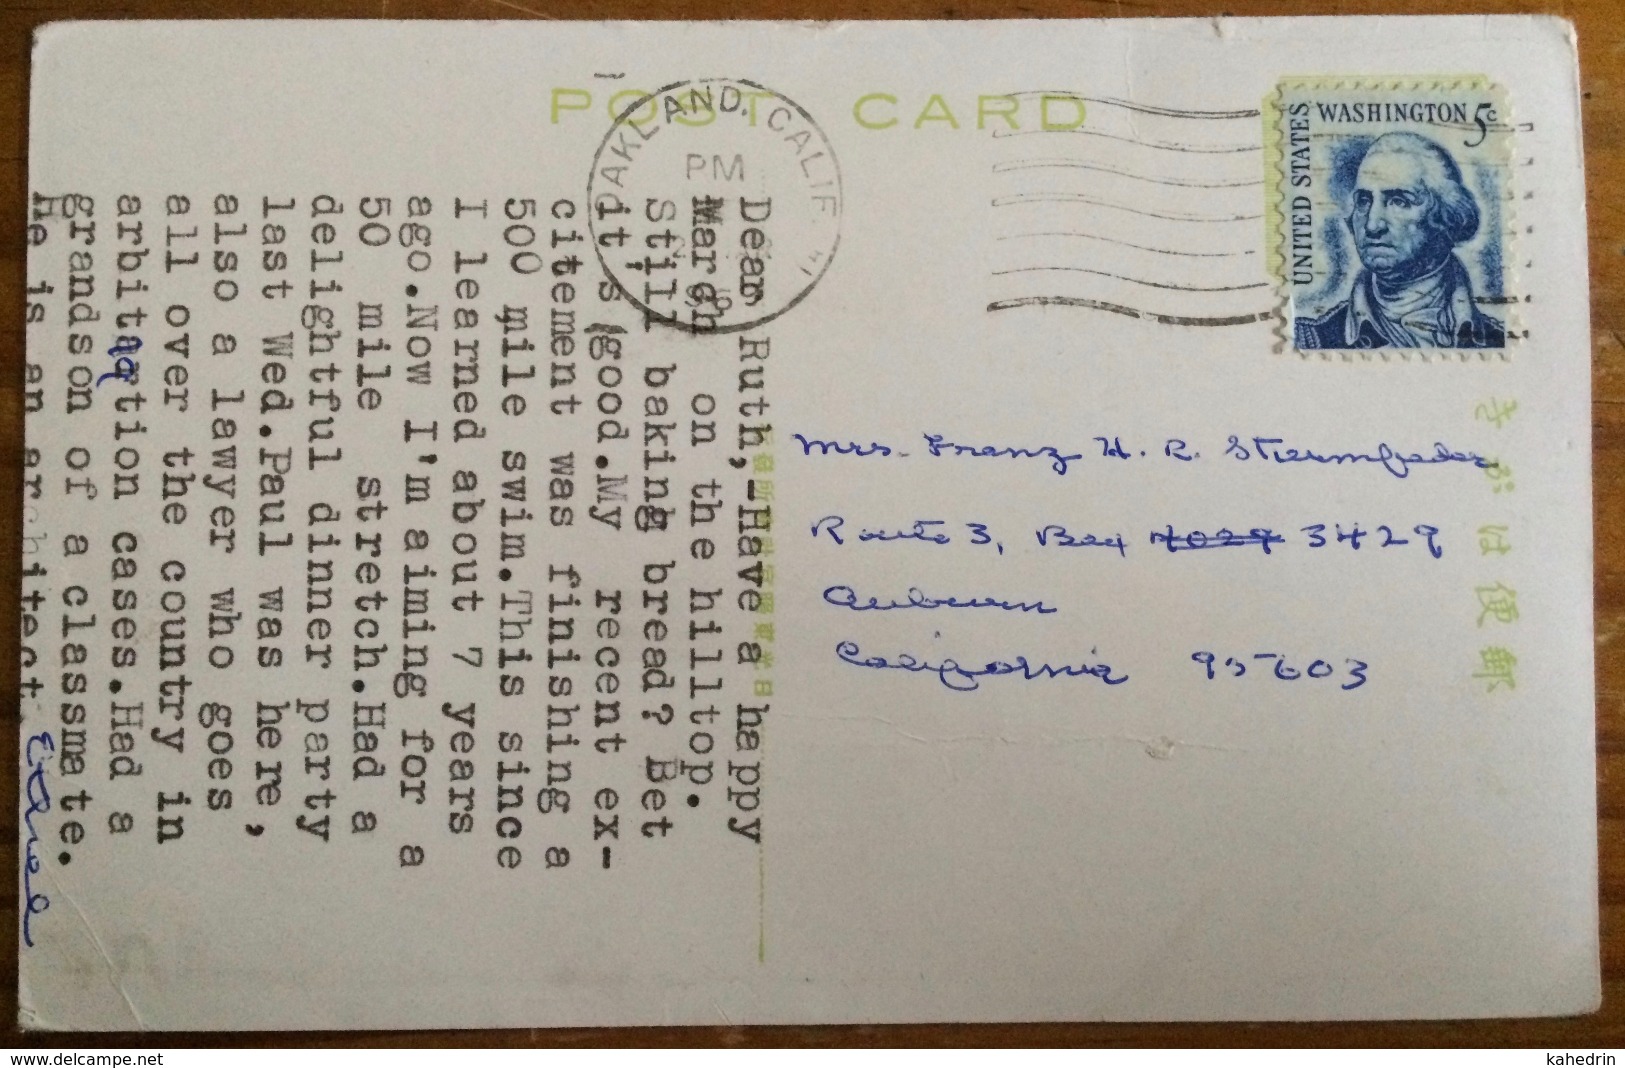 POST CARD
OAKLAND, CALIF
PM
UNITED STATES
WASHINGTON 5c
きがは便郵
Dear Ruth,-Have a happy
March on the hilltop.
Still baking bread? Bet
it's good.My recent ex-
citement was finishing a
500 mile swim.This since
I learned about 7 years
ago.Now I'm aiming for a
50 mile stretch.Had a
delightful dinner party
last Wed.Paul was here,
also a lawyer who goes
all over the country in
arbitration cases.Had a
grandson of a classmate.
He is an architect. Ethel
Mrs. Franz H. R.
Route 3, Box 4029 3429
Auburn
California 95603
www.delcampe.net
kahedrin